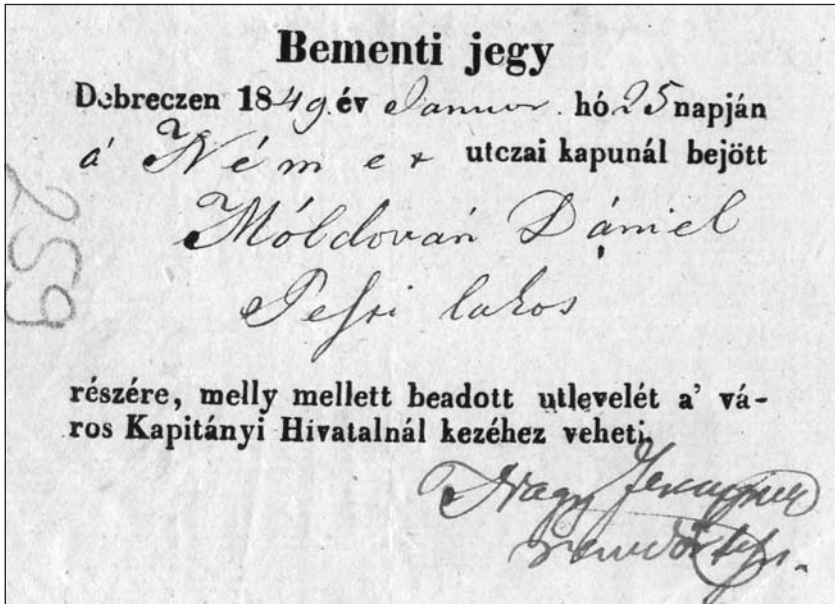 Bementi jegy
Debreczen 1849 év Januar. hó 25 napján
a' Német utczai kapunál bejött
Móldován Dániel
Pesti lakos
részére, melly mellett beadott utlevelét a' vá-
ros Kapitányi Hivatalnál kezéhez veheti.
Nagy
259